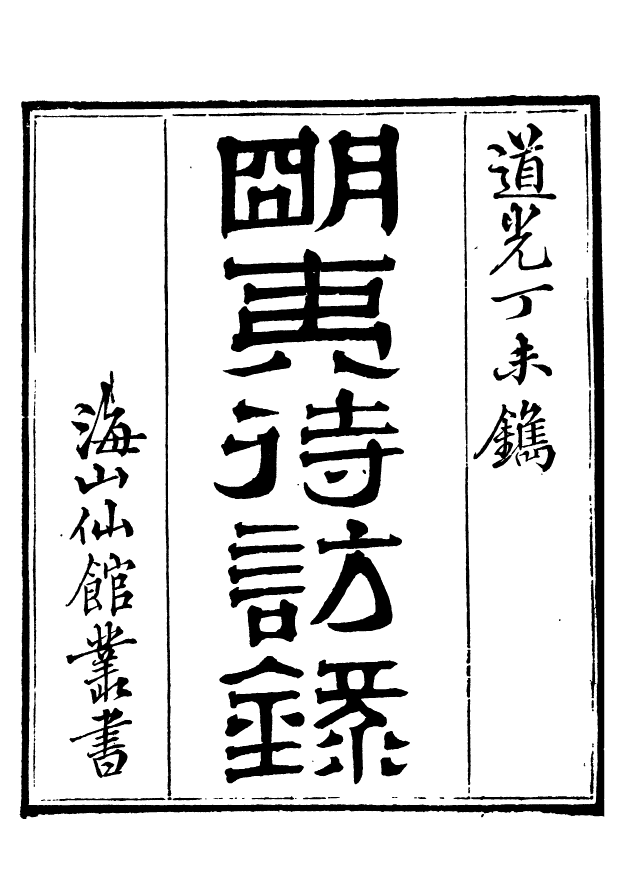 道光丁未鐫
朙夷待訪錄
海山仙館叢書